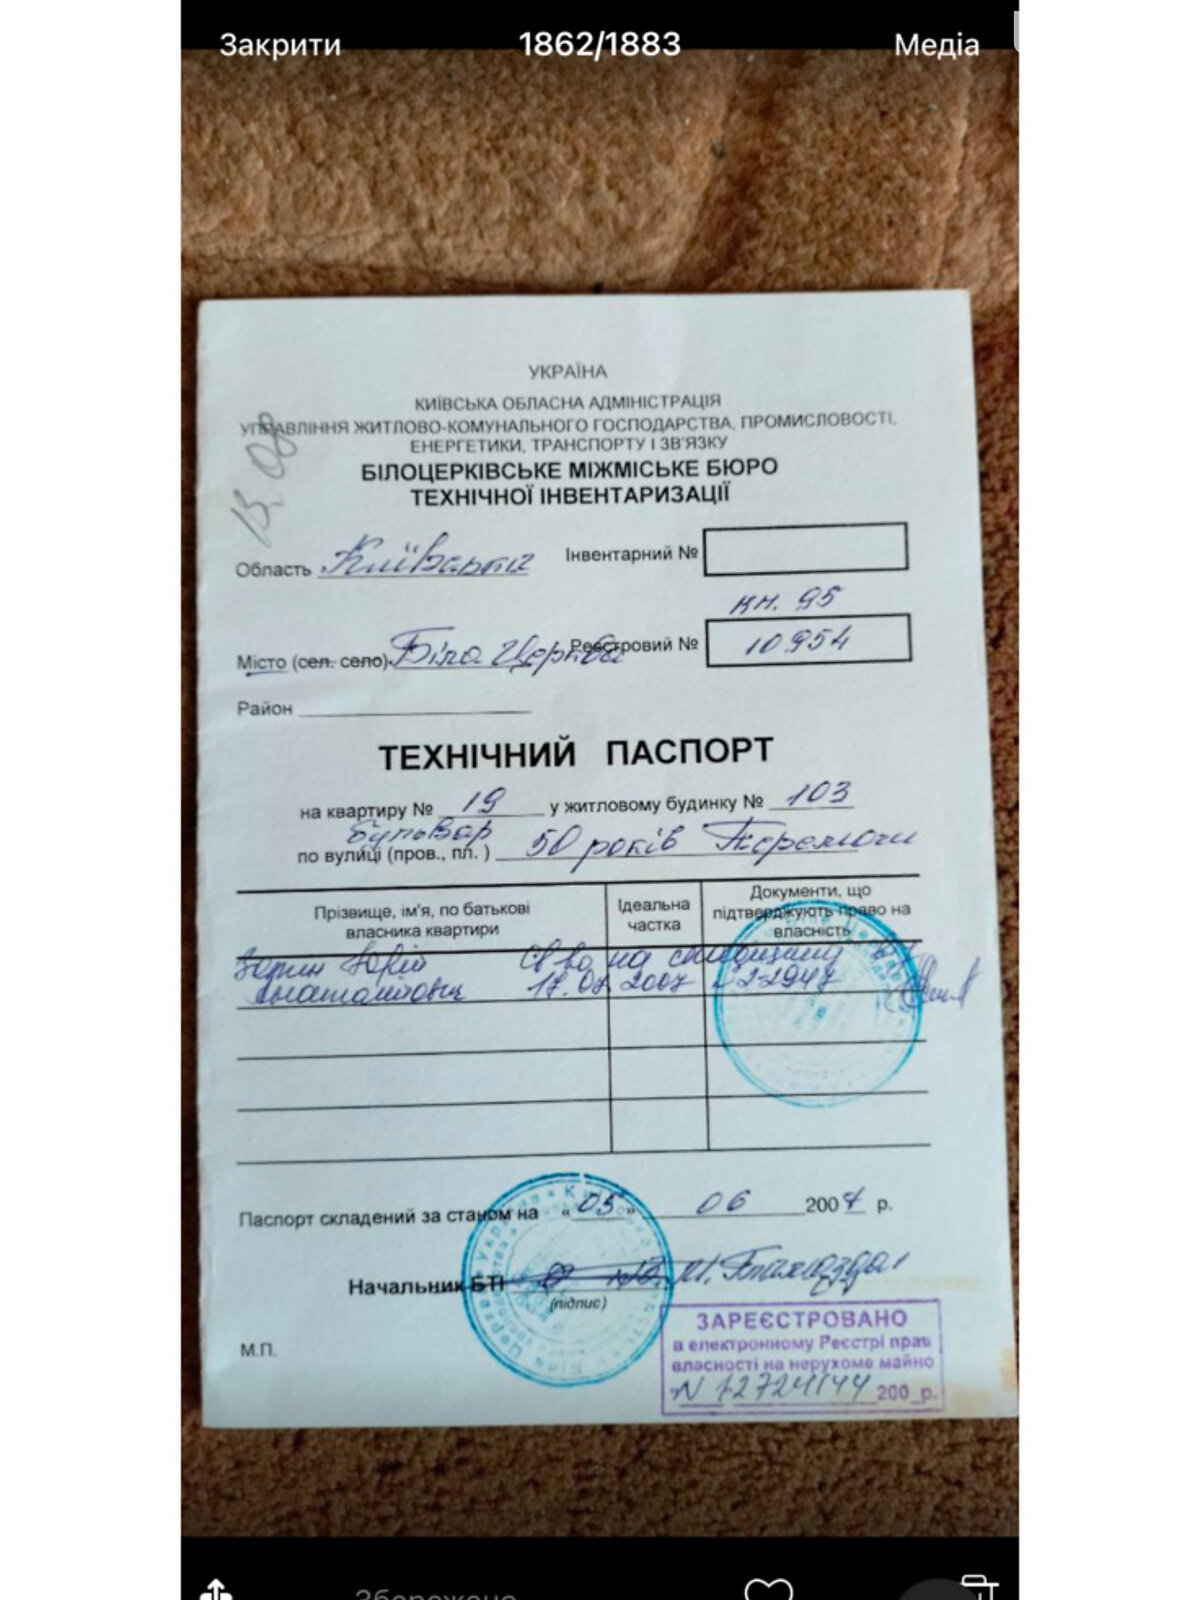 Закрити 1862/1883 Медіа
УКРАЇНА
КИЇВСЬКА ОБЛАСНА АДМІНІСТРАЦІЯ
УПРАВЛІННЯ ЖИТЛОВО-КОМУНАЛЬНОГО ГОСПОДАРСТВА, ПРОМИСЛОВОСТІ,
ЕНЕРГЕТИКИ, ТРАНСПОРТУ І ЗВ'ЯЗКУ
БІЛОЦЕРКІВСЬКЕ МІЖМІСЬКЕ БЮРО
ТЕХНІЧНОЇ ІНВЕНТАРИЗАЦІЇ
13.08
Область Київська Інвентарний №
кн. 95
Місто (сел. село) Біла Церква Реєстровий № 10954
Район
ТЕХНІЧНИЙ ПАСПОРТ
на квартиру № 19 у житловому будинку № 103
бульвар
по вулиці (пров., пл. ) 50 років Перемоги
Прізвище, ім'я, по батькові власника квартири
Ідеальна частка
Документи, що підтверджують право на власність
Юрій Св во на спадщину
Анатолійович 17.07.2007 2-2947
Паспорт складений за станом на «05» 06 2007 р.
Начальник БТІ
(підпис)
М.П.
ЗАРЕЄСТРОВАНО
в електронному Реєстрі прав
власності на нерухоме майно
N 12724144 200_р.
Збережено